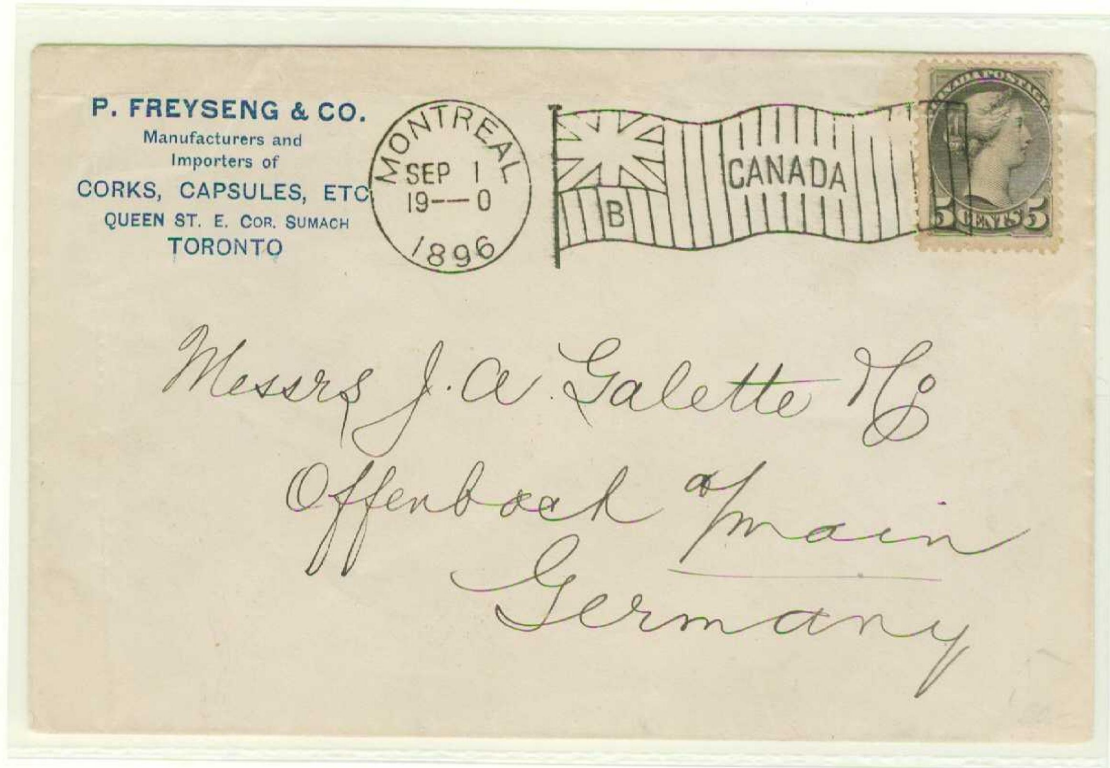 P. FREYSENG & CO.
Manufacturers and
Importers of
CORKS, CAPSULES, ETC
QUEEN ST. E. COR. SUMACH
TORONTO
MONTREAL
SEP 1
19--0
1896
CANADA
B
CANADA POSTAGE
5 CENTS 5
Messrs J. A Galette
Offenbach a/main
Germany